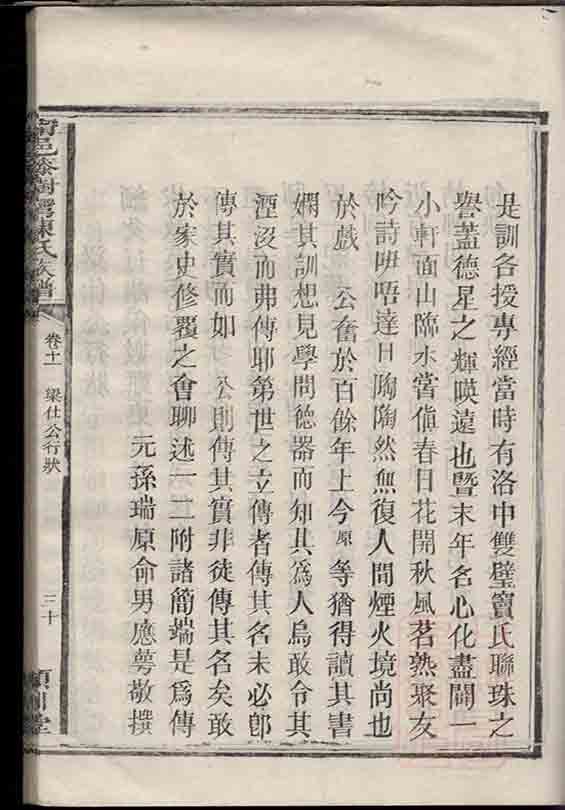 是訓各授專經當時有洛中雙璧竇氏聯珠之
譽蓋德星之輝暎遠也暨末年名心化盡闢一
小軒面山臨水當傎春日花開秋風茗熟聚友
吟詩咿唔達日陶陶然無復人間煙火境尚也
於戲 公奮於百餘年上今原等猶得讀其書
嫻其訓想見學問德器而知其為人烏敢令其
湮沒而弗傳耶第世之立傳者傳其名未必卽
傳其實而如 公則傳其實非徒傳其名矣敢
於家史修覆之會聊述一二附諸簡端是為傳
元孫瑞原命男應萼敬撰
甯邑漆樹灣陳氏族譜
卷十一 梁仕公行狀
三十
潁川堂